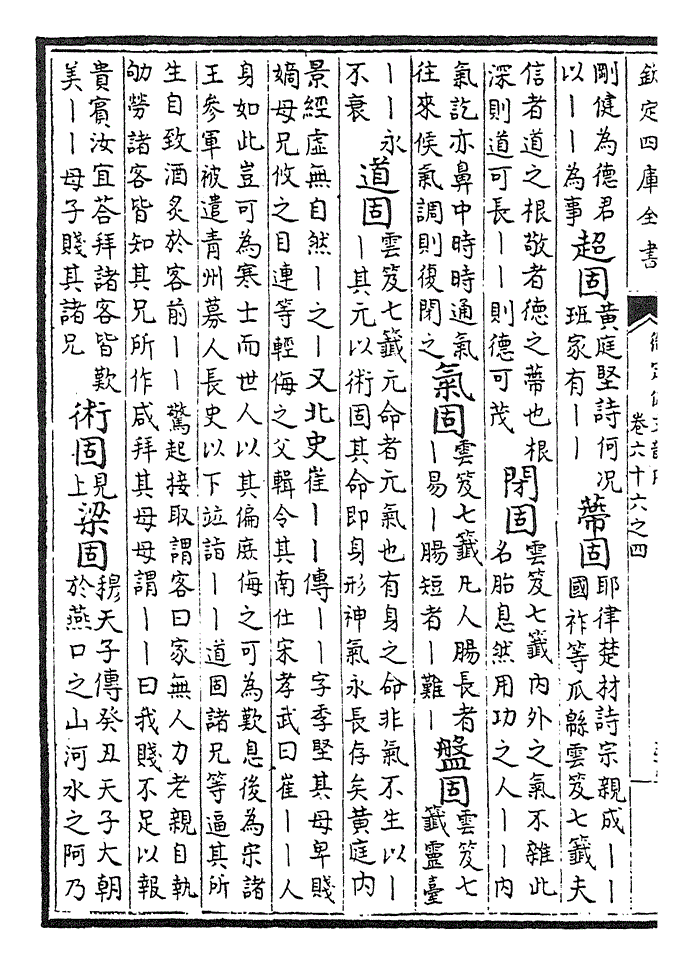 欽定四庫全書
卷六十六之四
剛健為德君
以——為事
超固
黄庭堅詩何况
班家有——
蔕固
耶律楚材詩宗親成——
國祚等瓜緜雲笈七籖夫
信者道之根敬者德之蔕也根
深則道可長——則德可茂
閉固
雲笈七籖内外之氣不雜此
名胎息然用功之人——内
氣訖亦鼻中時時通氣
往來候氣調則復閉之
氣固
雲笈七籖凡人腸長者
—易—腸短者—難—
盤固
雲笈七
籖靈臺
——永
不衰
道固
雲笈七籖元命者元氣也有身之命非氣不生以—
—其元以術固其命即身形神氣永長存矣黄庭内
景經虛無自然—之—又北史崔——傳——字季堅其母卑賤
嫡母兄攸之目連等輕侮之父輯令其南仕宋孝武曰崔——人
身如此豈可為寒士而世人以其偏庶侮之可為歎息後為宋諸
王參軍被遣青州募人長史以下竝詣——道固諸兄等逼其所
生自致酒炙於客前——驚起接取謂客曰家無人力老親自執
劬勞諸客皆知其兄所作咸拜其母母謂——曰我賤不足以報
貴賓汝宜荅拜諸客皆歎
美——母子賤其諸兄
術固
見
上
梁固
穆天子傳癸丑天子大朝
於燕口之山河水之阿乃